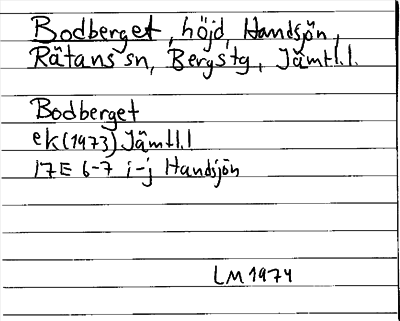 Bodberget, höjd, Handsjön,
Rätans sn, Bergs tg, Jämtl.l.
Bodberget
ek (1973) Jämtl.l
17E 6-7 i-j Handsjön
LM 1974